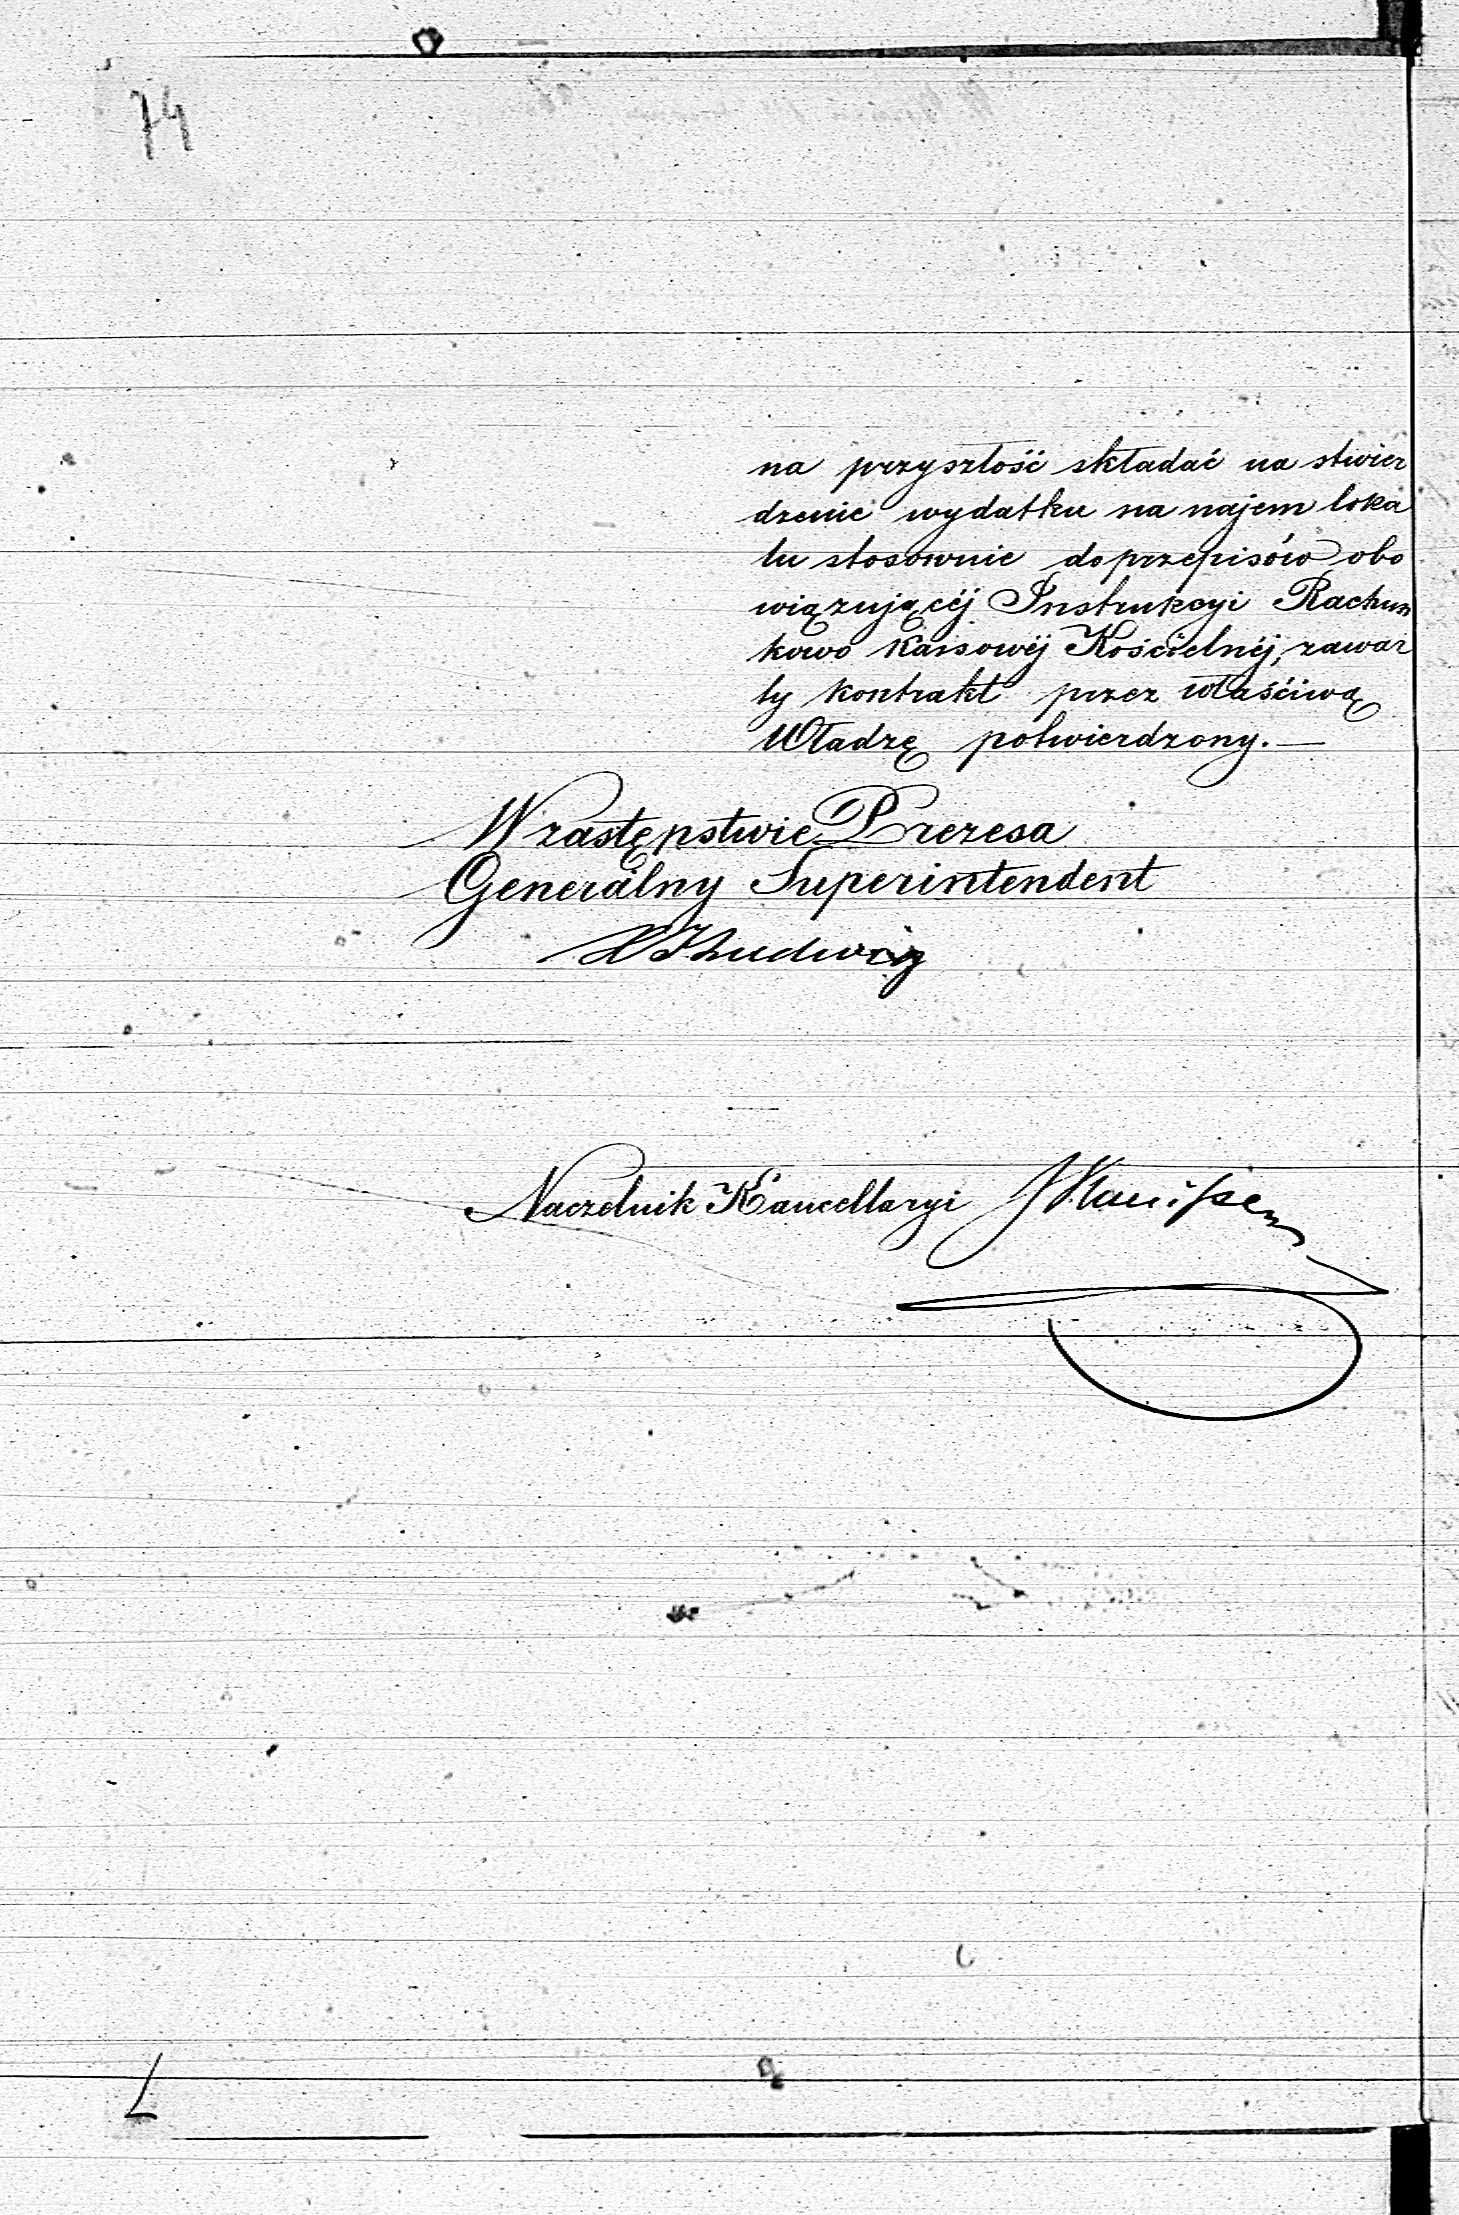 74
na przyszłość składać na stwier
dzenie wydatku na najem loka
lu stosownie do przepisów obo
wiązującéj Instrukcyi Rachun
kowo Kassowéj Kościelnéj, zawar
ty kontrakt przez właściwą
Władzę potwierdzony. —
W zastępstwie Prezesa
Generalny Superintendent
Ludwig
Naczelnik Kancellaryi